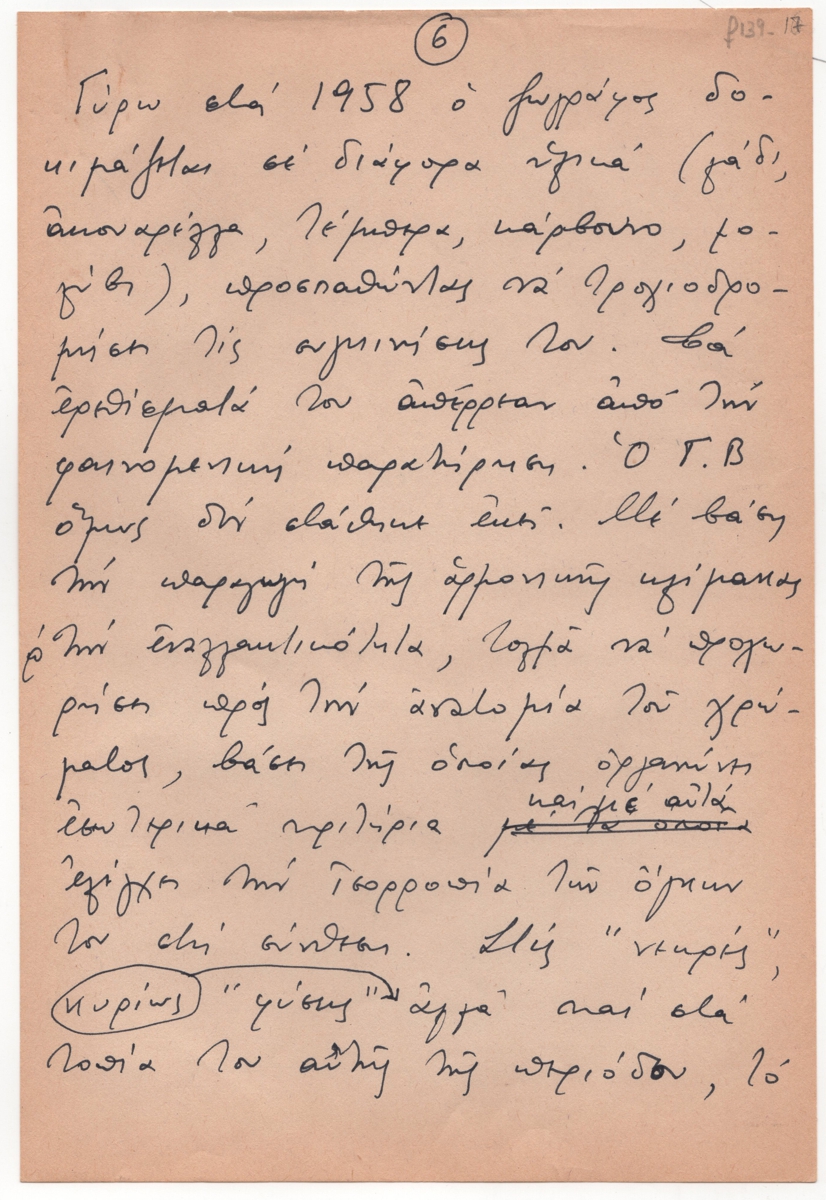 6
f139-17
Γύρω στά 1958 ὁ ζωγράφος δο-
κιμάζεται σέ διάφορα ὑλικά (λάδι,
ἀκουαρέλλα, τέμπερα, κάρβουνο, μο-
λύβι), προσπαθώντας νά τροχιοδρο-
μήσει τίς συγκινήσεις του. Τά
ἐρεθίσματά του ἀπέρρεαν ἀπό τήν
φαινομενική παρατήρηση. Ὁ Γ.Β
ὅμως δέν στάθηκε ἐκεῖ. Μέ βάση
τήν παραγωγή τῆς ἁρμονικῆς κλίμακας
τήν ἐναλλακτικότητα, τολμᾶ νά προχω-
ρήσει πρός τήν ἀνατομία τοῦ χρώ-
ματος, βάσει τῆς ὁποίας ὀργανώνει
καί μέ αὐτά
ἐσωτερικά κριτήρια με τα οποια
ἐλέγχει τήν ἰσορροπία τῶν ὄγκων
του στή σύνθεση. Στίς "νεκρές",
κυρίως "φύσεις" ἀλλά καί στά
τοπία του αὐτῆς τῆς περιόδου, τό